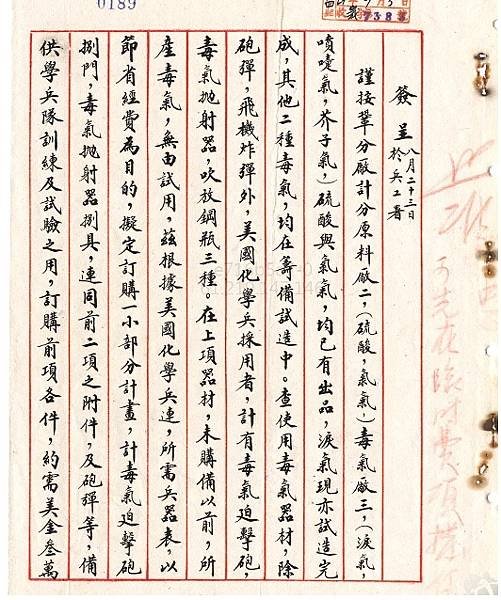 0189
7388
簽呈 八月二十三日於兵工署
謹按鞏分廠計分原料廠二，（硫酸，氯氣，）毒氣廠三，（淚氣，
噴嚏氣，芥子氣，）硫酸與氯氣，均已有出品，淚氣現亦試造完
成，其他二種毒氣，均在籌備試造中。查使用毒氣器材，除
砲彈，飛機炸彈外，美國化學兵採用者，計有毒氣迫擊砲，
毒氣拋射器，吹放鋼瓶三種。在上項器材，未購備以前，所
產毒氣，無由試用，茲根據美國化學兵連，所需兵器表，以
節省經費為目的，擬定訂購一小部分計畫，計毒氣迫擊砲
捌門，毒氣拋射器捌具，連同前二項之附件，及砲彈等，備
供學兵隊訓練及試驗之用，訂購前項各件，約需美金叁萬